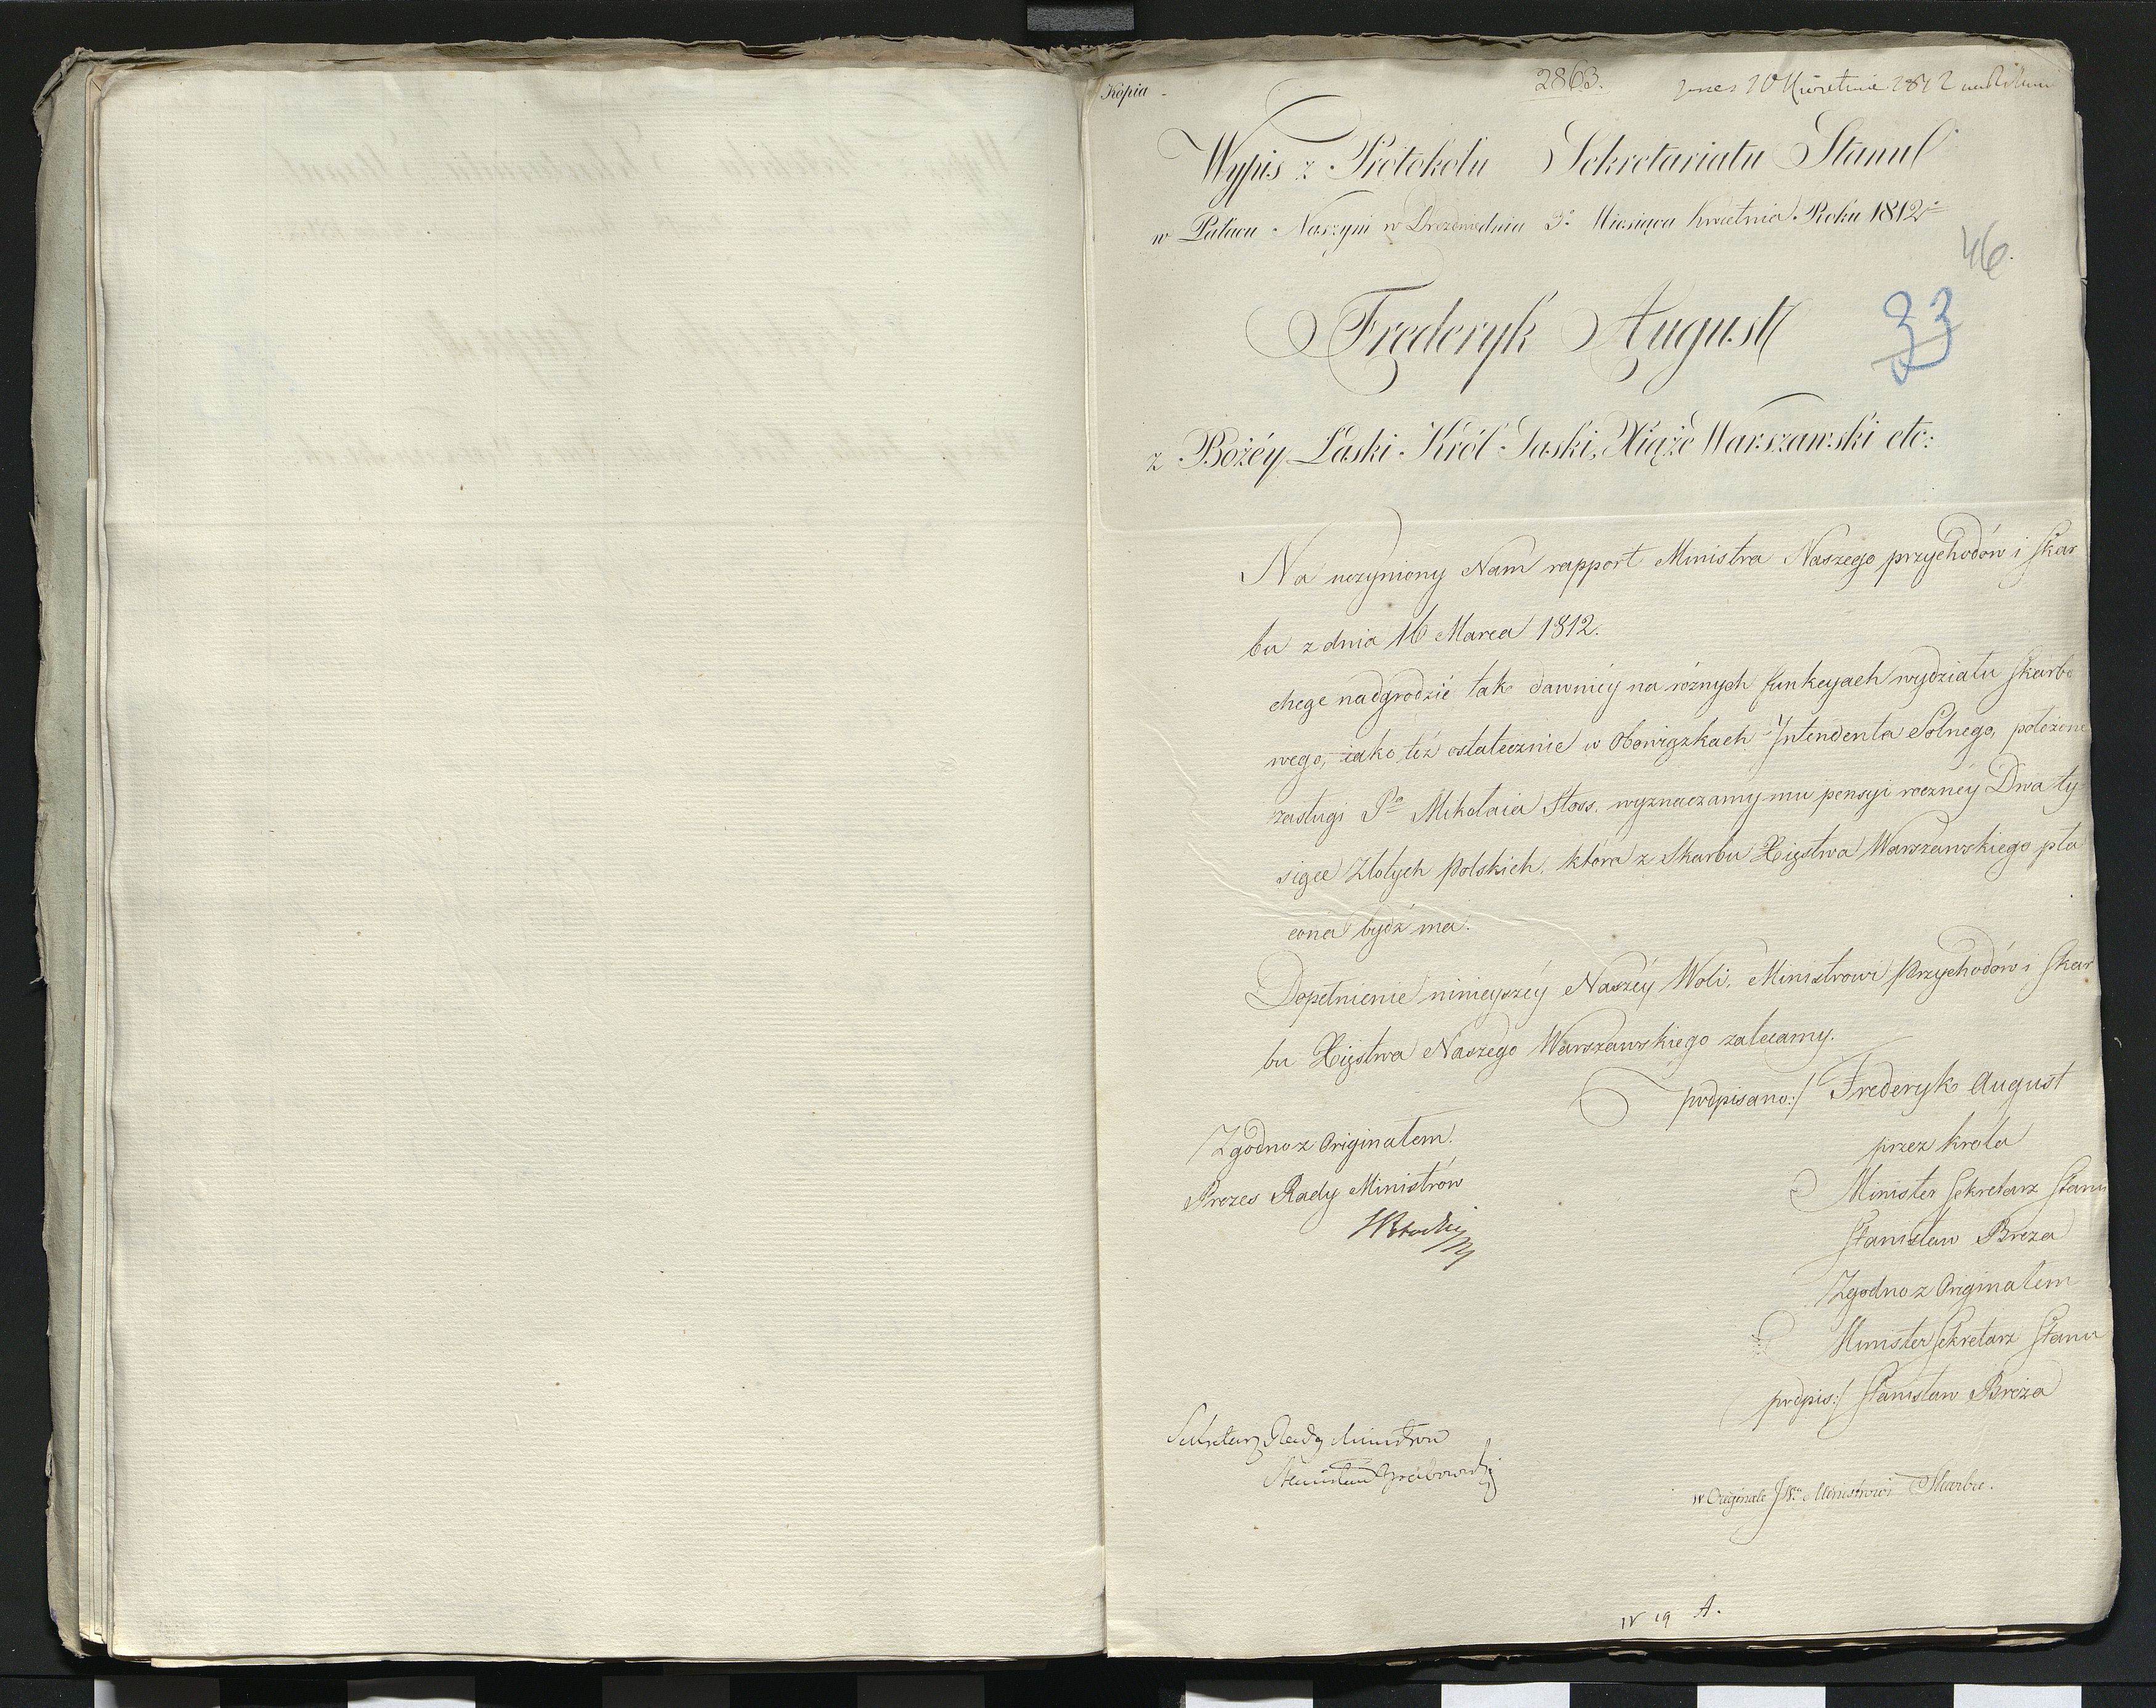 Kopia -
2863.
10 Kwietnia 1812
Wypis z Protokołu Sekretariatu Stanu
w Pałacu Naszym w Dreznie dnia 3° Miesiąca Kwietnia Roku 1812
46.
Frederyk August
33
z Bożéy Łaski Król Saski, Xiąże Warszawski etc:
Na uczyniony Nam rapport Ministra Naszego przychodów i Skar
bu z dnia 16 Marca 1812.
chcąc nadgrodzić tak dawniéy na różnych funkcyach wydziału Skarbo
wego, iako téż ostatecznie w Obowiązkach Intendenta Solnego, położone
zasługi Pa Mikołaia Stoss, wyznaczamy mu pensyi roczney Dwa ty
siące Złotych polskich, która z Skarbu Xięstwa Warszawskiego pła
cona bydź ma.
Dopełnienie ninieyszéy Naszéy Woli, Ministrowi Przychodów i Skar
bu Xięstwa Naszego Warszawskiego zalecamy.
podpisano:/ Frederyk August
przez króla
Minister Sekretarz Stanu
Stanisław Breza
Zgodno z Originałem
Minister Sekretarz Stanu
podpis:/ Stanisław Breza
Zgodno z Originałem.
Prezes Rady Ministrów
Sekretarz Rady Ministrów
Stanisław Grabowski
w Originale JW. Ministrowi Skarbu.
N 19 A.